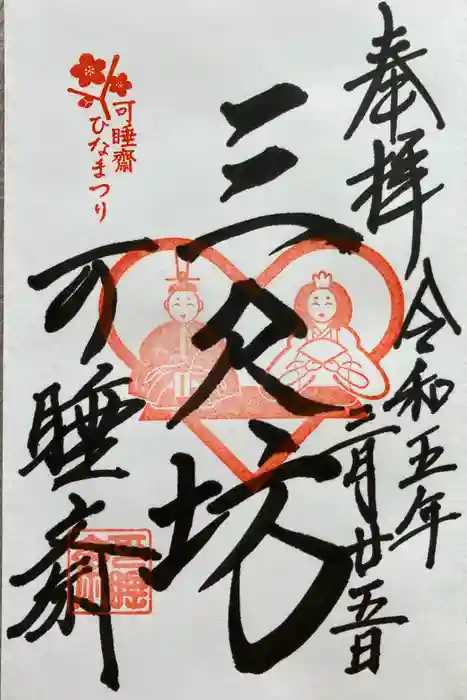 奉拝 令和五年二月廿五日
三尺坊
可睡齋
ひなまつり
可睡斎